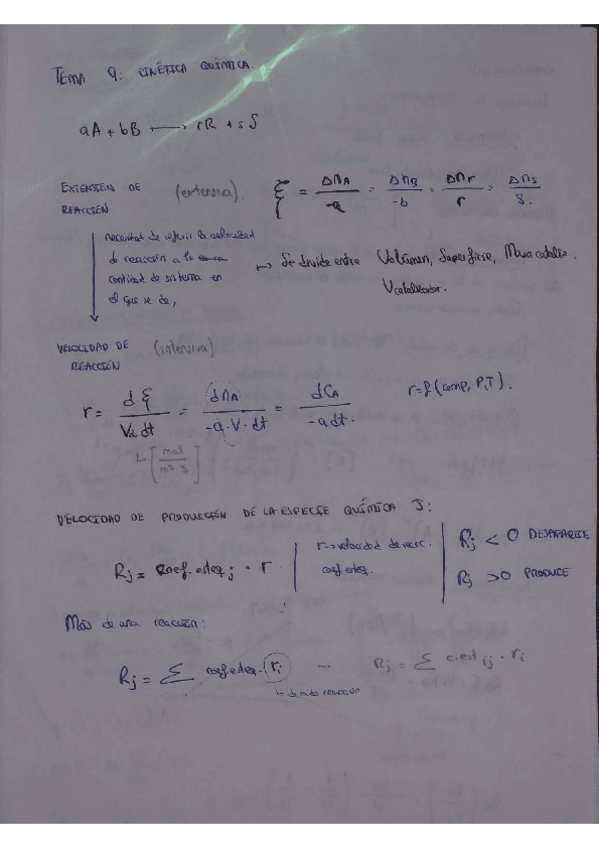 TEMA 9: CINÉTICA QUÍMICA.
aA + bB ⟶ rR + sS
EXTENSIÓN DE REACCIÓN (extensiva) ξ = ΔnA/-a = ΔnB/-b = Δnr/r = Δns/s.
necesidad de referir la velocidad
de reacción a la
cantidad de sistema en
el que se da,
↦ Se divide entre Volumen, Superficie, Masa cataliz.
Vcatalizador.
VELOCIDAD DE REACCIÓN (intensiva)
r = dξ/V·dt = dnA/-a·V·dt = dCA/-a dt. r=f(comp, P,T).
[mol/m³ s]
VELOCIDAD DE PRODUCCIÓN DE LA ESPECIE QUÍMICA J:
Rj = coef.esteq j · r
r→velocidad de reacc.
coef esteq.
Rj < 0 DESAPARECE
Rj > 0 PRODUCE
Más de una reacción:
Rj = Σ coef.esteq. ri — Rj = Σ c.est ij · ri
↳ de cada reacción